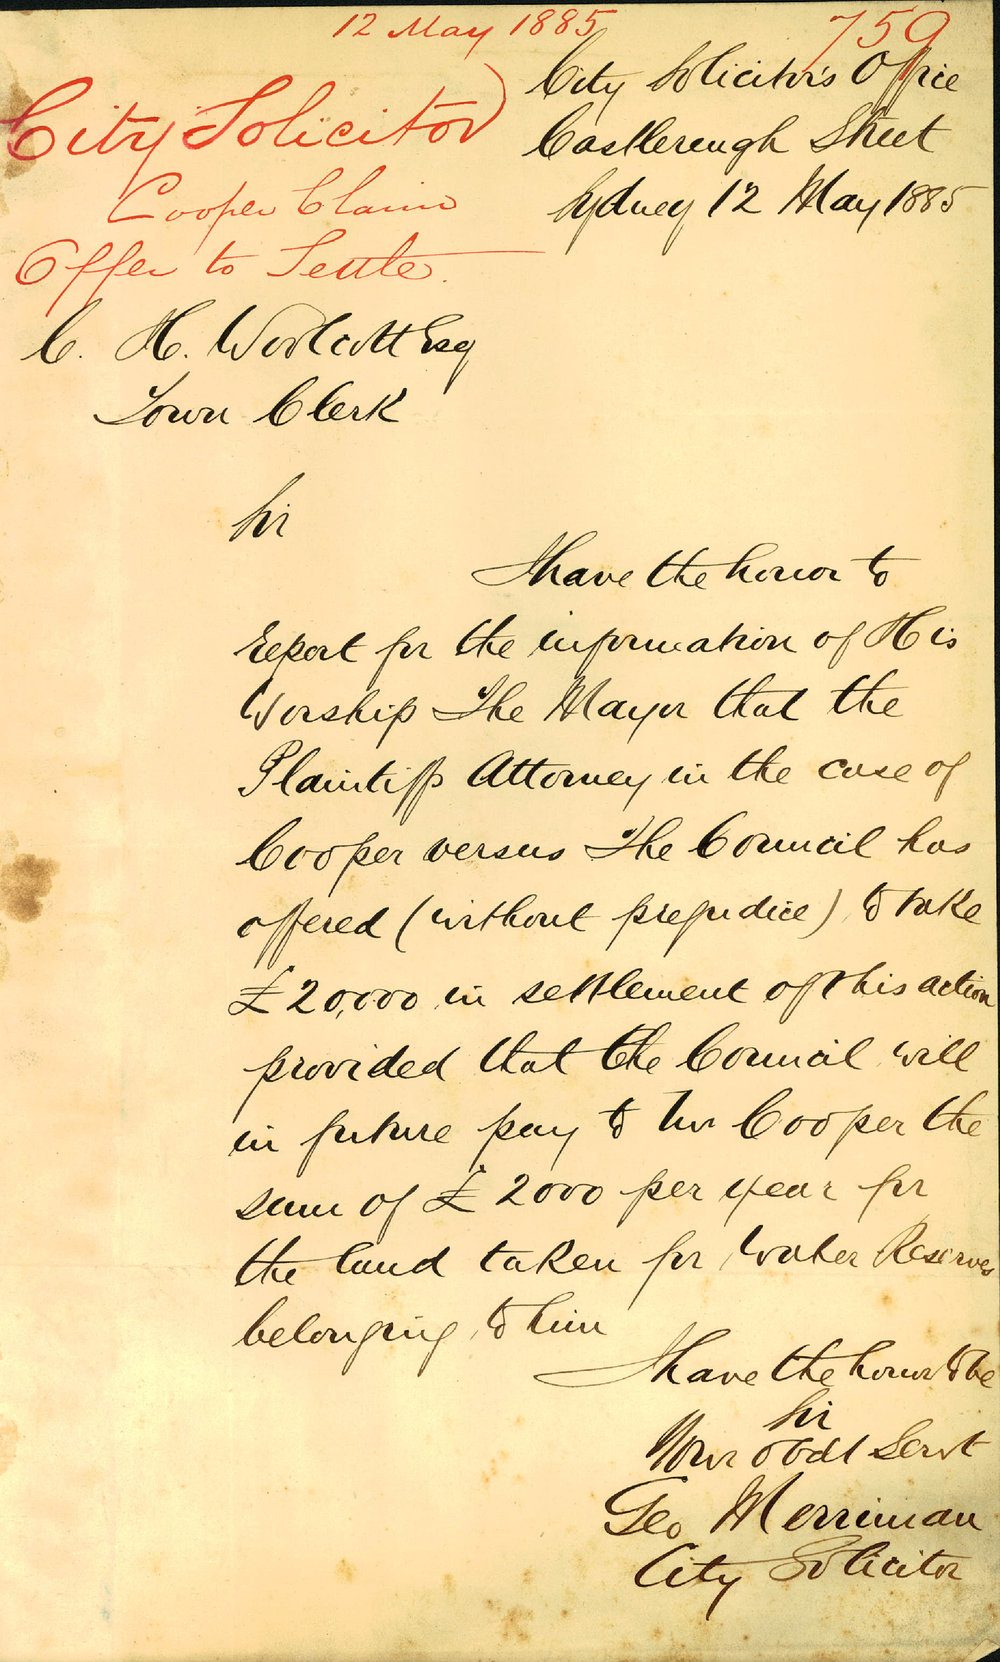 12 May 1885
759
City Solicitor
Cooper Claim
Offer to Settle.
City Solicitor's Office
Castlereagh Street
Sydney 12 May 1885
C. H. Woolcott Esq
Town Clerk
Sir
I have the honor to
report for the information of His
Worship The Mayor that the
Plaintiffs Attorney in the case of
Cooper versus The Council has
offered (without prejudice) to take
£20,000 in settlement of this action
provided that the Council will
in future pay to Mr Cooper the
sum of £2000 per year for
the land taken for Water Reserves
belonging to him
I have the honor to be
Sir
Your obdt Servt
Geo Merriman
City Solicitor